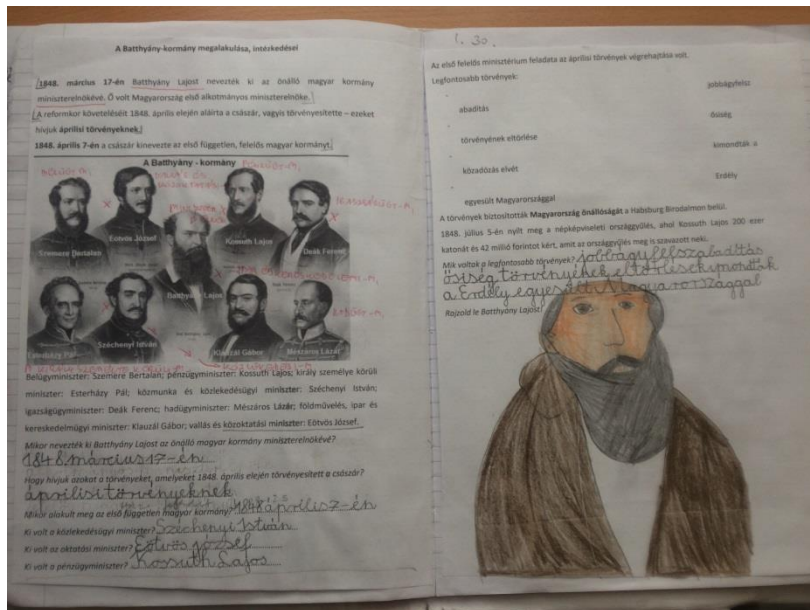 A Batthyány-kormány megalakulása, intézkedései
1848. március 17-én Batthyány Lajost nevezték ki az önálló magyar kormány
miniszterelnökévé. Ő volt Magyarország első alkotmányos miniszterelnöke.
A reformkor követeléseit 1848. április elején aláírta a császár, vagyis törvényesítette – ezeket
hívjuk áprilisi törvényeknek.
1848. április 7-én a császár kinevezte az első független, felelős magyar kormányt.
A Batthyány - kormány
Szemere Bertalan
Eötvös József
Kossuth Lajos
Deák Ferenc
Batthyány Lajos
Esterházy Pál
Széchenyi István
Klauzál Gábor
Mészáros Lázár
Belügyminiszter: Szemere Bertalan; pénzügyminiszter: Kossuth Lajos; király személye körüli
miniszter: Esterházy Pál; közmunka és közlekedésügyi miniszter: Széchenyi István;
igazságügyminiszter: Deák Ferenc; hadügyminiszter: Mészáros Lázár; földművelés, ipar és
kereskedelmügyi miniszter: Klauzál Gábor; vallás és közoktatási miniszter: Eötvös József.
Mikor nevezték ki Batthyány Lajost az önálló magyar kormány miniszterelnökévé?
1848 március 17-én
Hogy hívjuk azokat a törvényeket, amelyeket 1848. április elején törvényesített a császár?
áprilisi törvényeknek
Mikor alakult meg az első független magyar kormány? 1848 április 7-én
Ki volt a közlekedésügyi miniszter? Széchenyi István
Ki volt az oktatási miniszter? Eötvös József
Ki volt a pénzügyminiszter? Kossuth Lajos
1. 30.
Az első felelős minisztérium feladata az áprilisi törvények végrehajtása volt.
Legfontosabb törvények:
jobbágyfelsz
abadítás
ősiség
törvényének eltörlése
kimondták a
közadózás elvét
Erdély
egyesült Magyarországgal
A törvények biztosították Magyarország önállóságát a Habsburg Birodalmon belül.
1848. július 5-én nyílt meg a népképviseleti országgyűlés, ahol Kossuth Lajos 200 ezer
katonát és 42 millió forintot kért, amit az országgyűlés meg is szavazott neki.
Mik voltak a legfontosabb törvények? jobbágyfelszabadítás
ősiség törvényének eltörlése kimondták
a Erdély egyesült Magyarországgal
Rajzold le Batthyány Lajost!